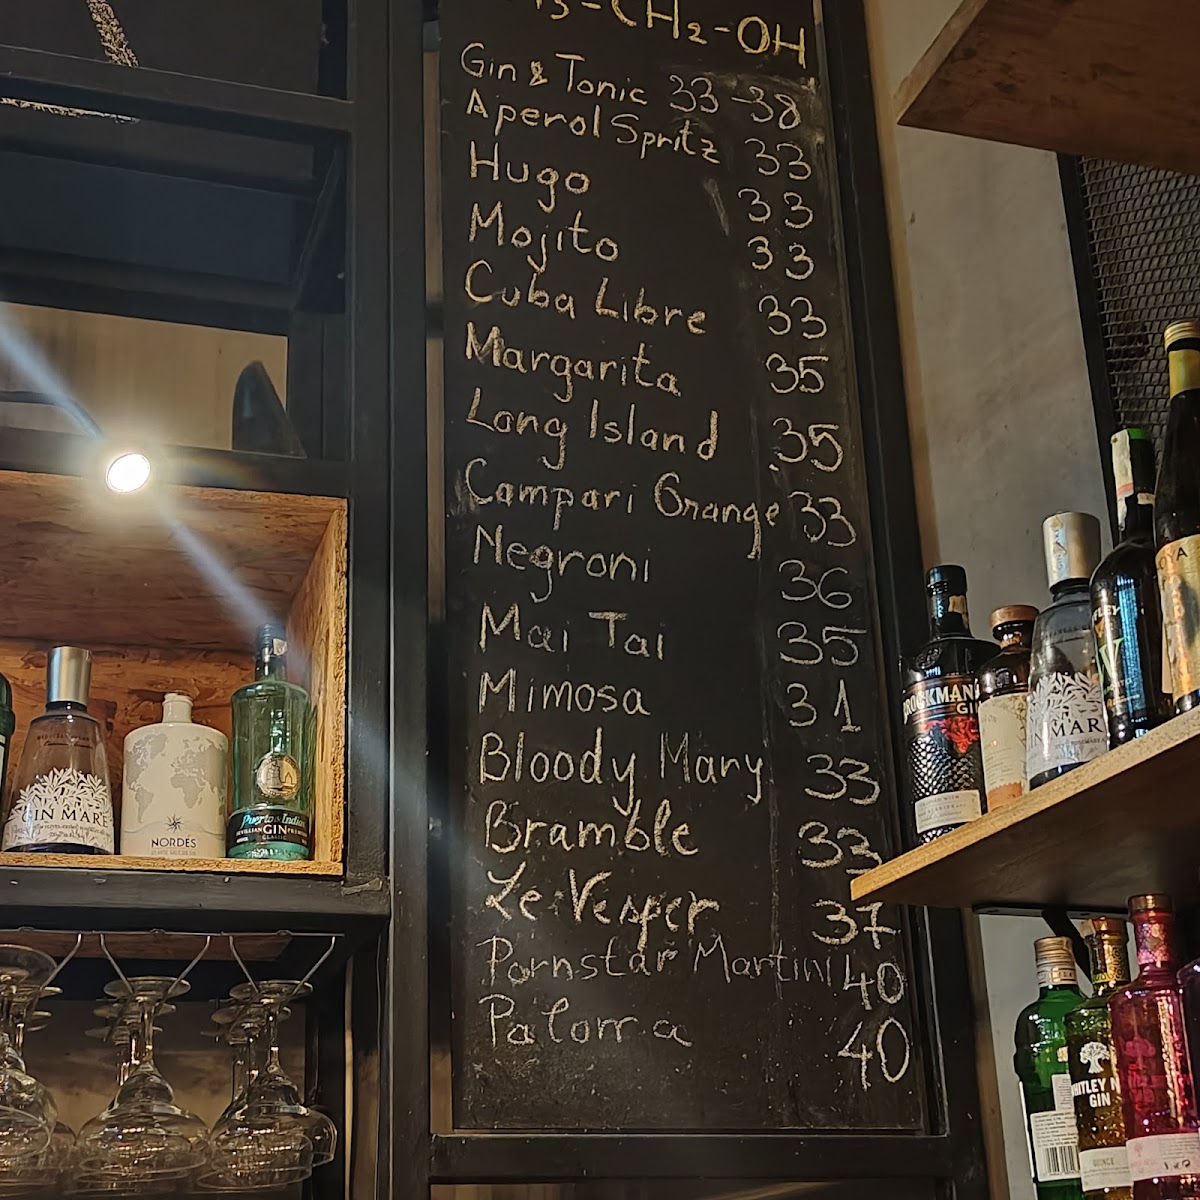 -CH2-OH
Gin & Tonic 33-38
Aperol Spritz 33
Hugo 33
Mojito 33
Cuba Libre 33
Margarita 35
Long Island 35
Campari Orange 33
Negroni 36
Mai Tai 35
Mimosa 31
Bloody Mary 33
Bramble 33
Le Vesper 37
Pornstar Martini 40
Paloma 40
GIN MARE
NORDÉS
Puerto & Indias
SEVILLIAN GIN PREMIUM
CLASSIC
BROCKMAN
GIN
GIN MAR
OYA
WHITLEY N
GIN
QUINCE